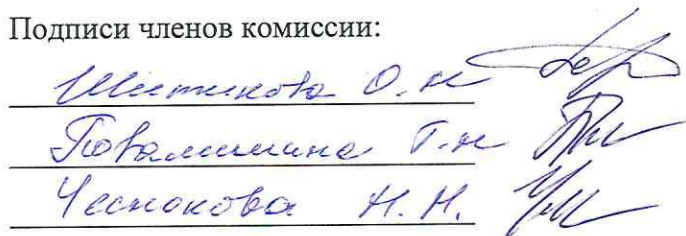 Подписи членов комиссии:
Шитикова О.Н
Повалишина Т.Н
Чеснокова Н.Н.